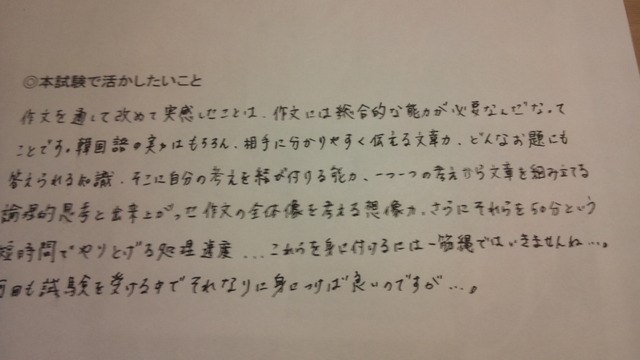 ◎本試験で活かしたいこと
作文を通して改めて実感したことは、作文には総合的な能力が必要なんだなって
ことです。韓国語の実力はもちろん、相手に分かりやすく伝える文章力、どんなお題にも
答えられる知識、そこに自分の考えを結び付ける能力、一つ一つの考えから文章を組み立てる
論理的思考と出来上がった作文の全体像を考える想像力、さらにそれらを50分という
短時間でやりとげる処理速度...これらを身に付けるには一筋縄ではいきませんね…。
回も試験を受ける中でそれなりに身につけば良いのですが…。